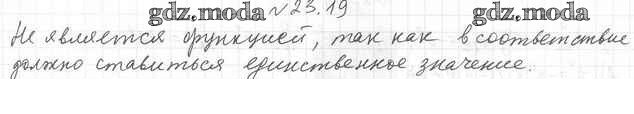 gdz.moda №23.19 gdz.moda
Не является функцией, так как в соответствие
должно ставиться единственное значение.